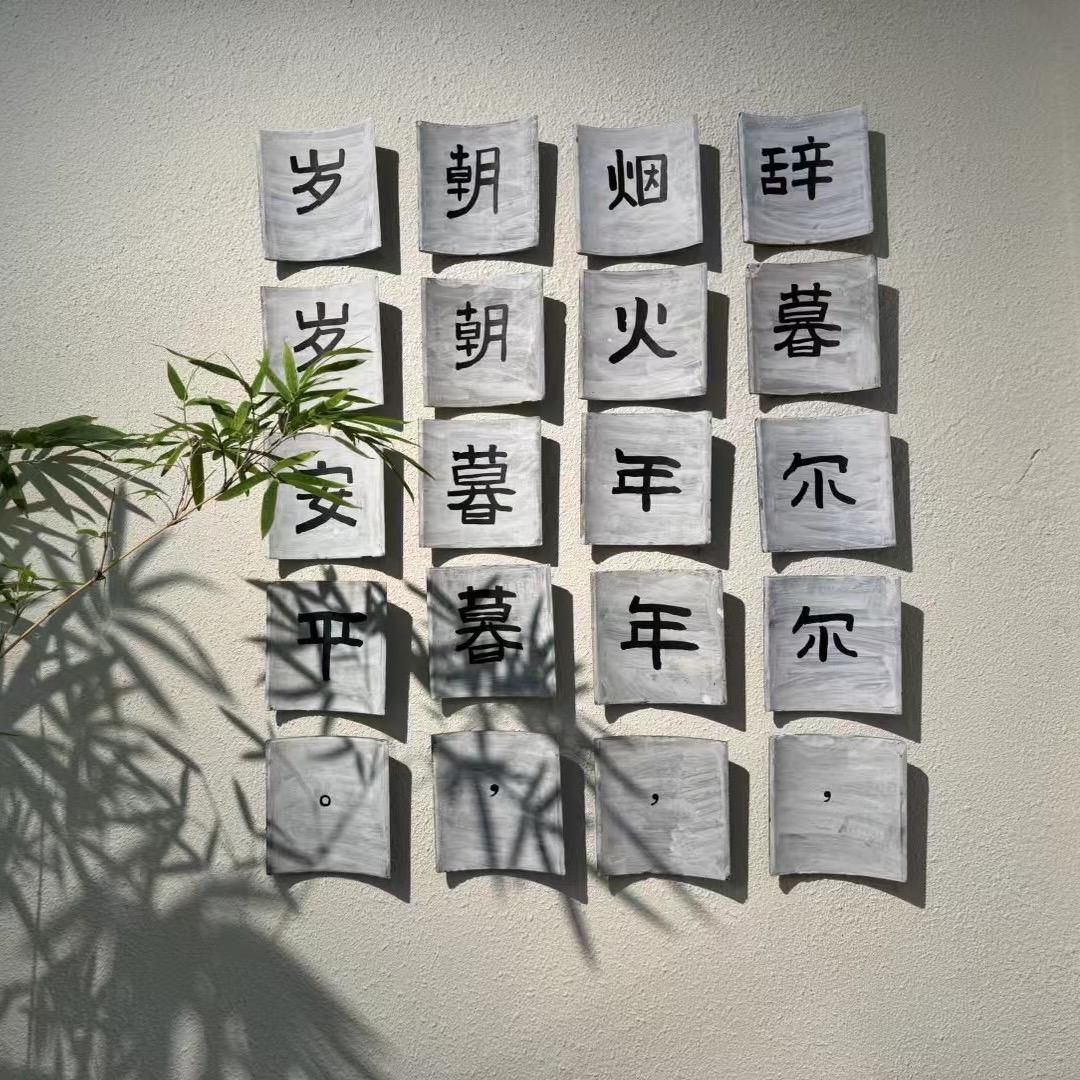 辞暮尔尔，
烟火年年，
朝朝暮暮，
岁岁安平。